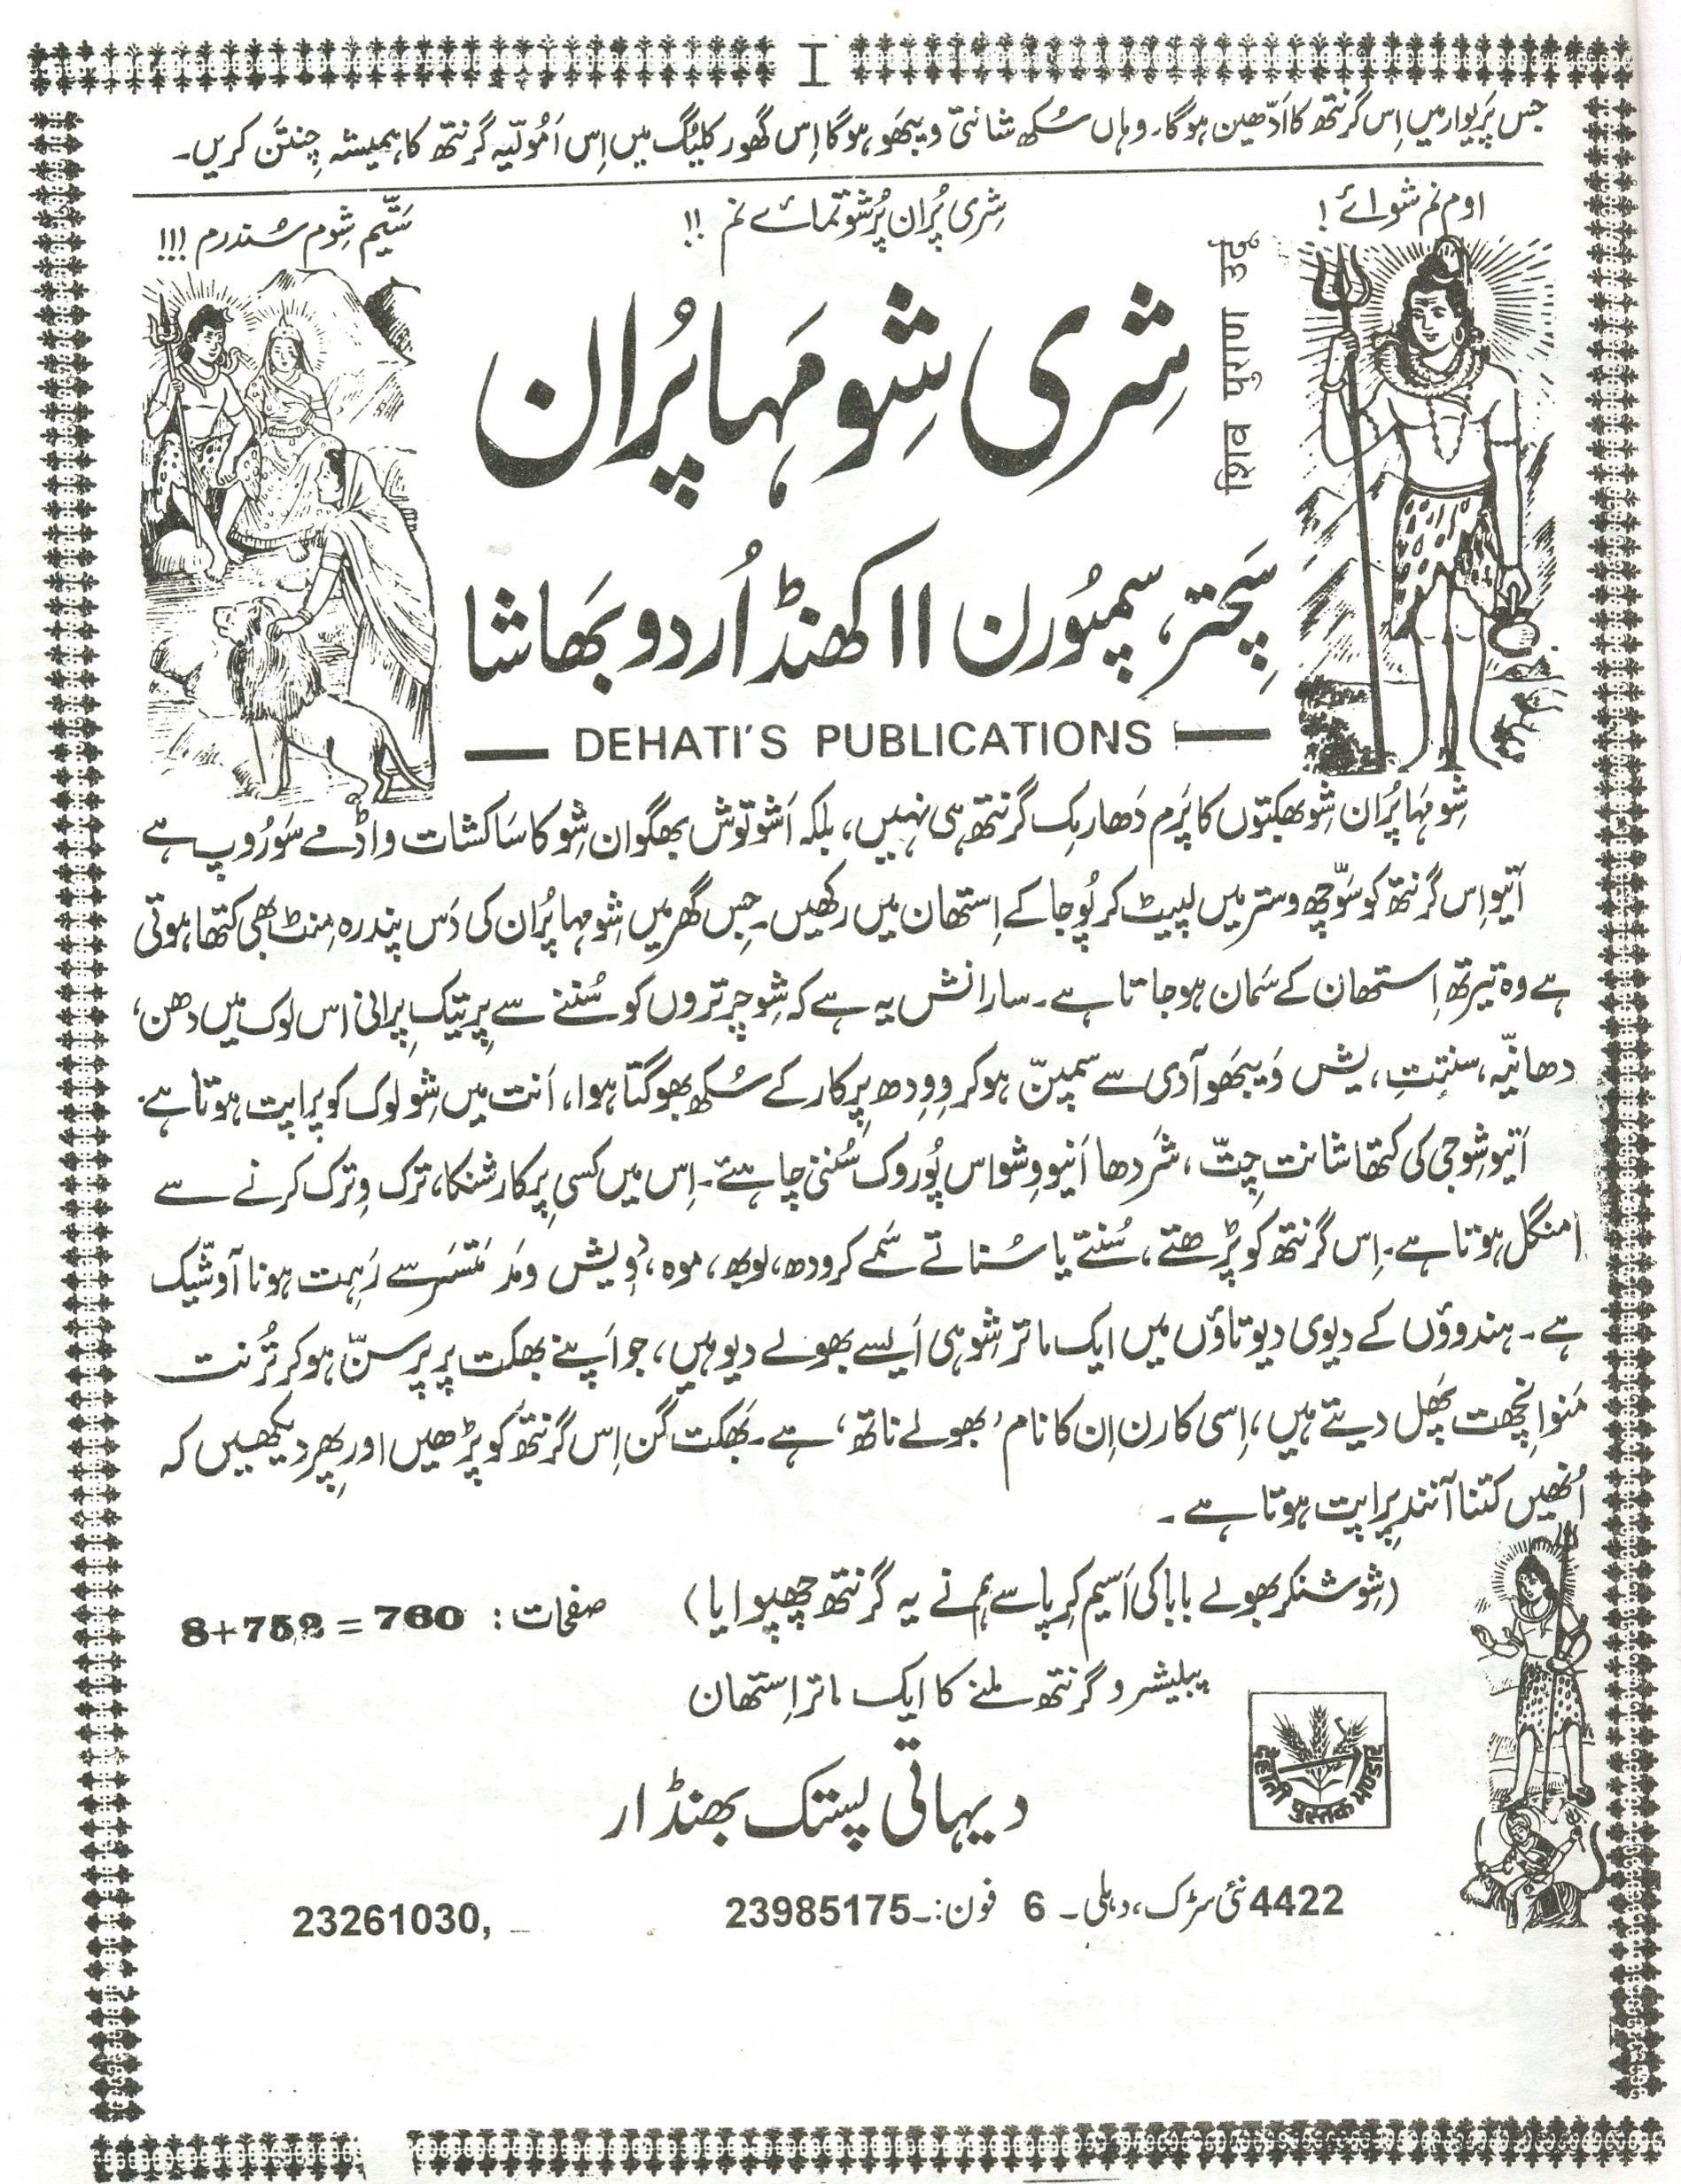 I
جس پَریوار میں اِس گرنتھ کا اَدّھین ہوگا۔ وہاں سُکھ شانتی و یبَھو ہوگا اِس گھور کلیُگ میں اِس اَمُولّیہ گرنتھ کا ہمیشہ چِنتَن کریں۔
اوم نم شوائے !
شِری پُران پُرشوتمائے نم !!
سَتّیم شِوم سُندرم !!!
شِری شِو مَہا پُران
शिव पुराण उर्दू
سَچِتر، سمپُورن ۱۱ کھنڈ اُردو بَھاشا
DEHATI'S PUBLICATIONS
شِو مَہا پُران شِو بھکتوں کا پَرم دَھارمِک گرنتھ ہی نہیں، بلکہ اَشوتوش بھگوان شِو کا سَاکشات واڈمے سَورُوپ ہے
اَتیو اِس گرنتھ کو سَوّچھ وستر میں لپیٹ کر پُوجا کے اِستھان میں رکھیں۔ جِس گھر میں شِو مہا پُران کی دَس پندرہ مِنٹ بھی کتھا ہوتی
ہے وہ تیرتھ اِستھان کے سَمان ہو جاتا ہے۔ سارانش یہ ہے کہ شِو چرتروں کو سُننے سے پرتیک پرانی اس لوک میں دھن،
دھانیّہ، سنتتِ، یش وَیبَھو آدی سے سمپنّ ہوکر وِودھ پرکار کے سُکھ بھوگتا ہوا، اَنت میں شِو لوک کو پراپت ہوتا ہے۔
اَتیو شِو جی کی کتھا شانت چِتّ، شَردھا اَتیو وِشواس پُوروک سُننی چاہئے۔ اِس میں کسی پرکار شنکا، ترک وِترک کرنے سے
امنگل ہوتا ہے۔ اِس گرنتھ کو پڑھتے، سُنتے یا سُناتے سَمے کرودھ، لوبھ، موہ، دِویش و مَد مَتسَر سے رَہِت ہونا آوشّیک
ہے۔ ہندوؤں کے دیوی دیوتاؤں میں ایک ماتر شِو ہی اَیسے بھولے دیو ہیں، جو اَپنے بھکت پر پرسنّ ہوکر تُرنت
مَنوانچھت پَھل دیتے ہیں، اِسی کارن اِن کا نام 'بھولے ناتھ' ہے۔ بَھکت گن اِس گرنتھ کو پڑھیں اور پِھر دیکھیں کہ
اُنھیں کتنا آنند پراپت ہوتا ہے۔
(شِو شنکر بھولے بابا کی اَسیم کرپا سے ہم نے یہ گرنتھ چھپوایا) صفحات: 8+752 = 760
پبلیشر و گرنتھ ملنے کا ایک ماتر اِستھان
देहाती पुस्तक भण्डार
دیہاتی پستک بھنڈار
4422 نئی سڑک، دہلی۔ 6 فون:۔ 23985175 23261030,